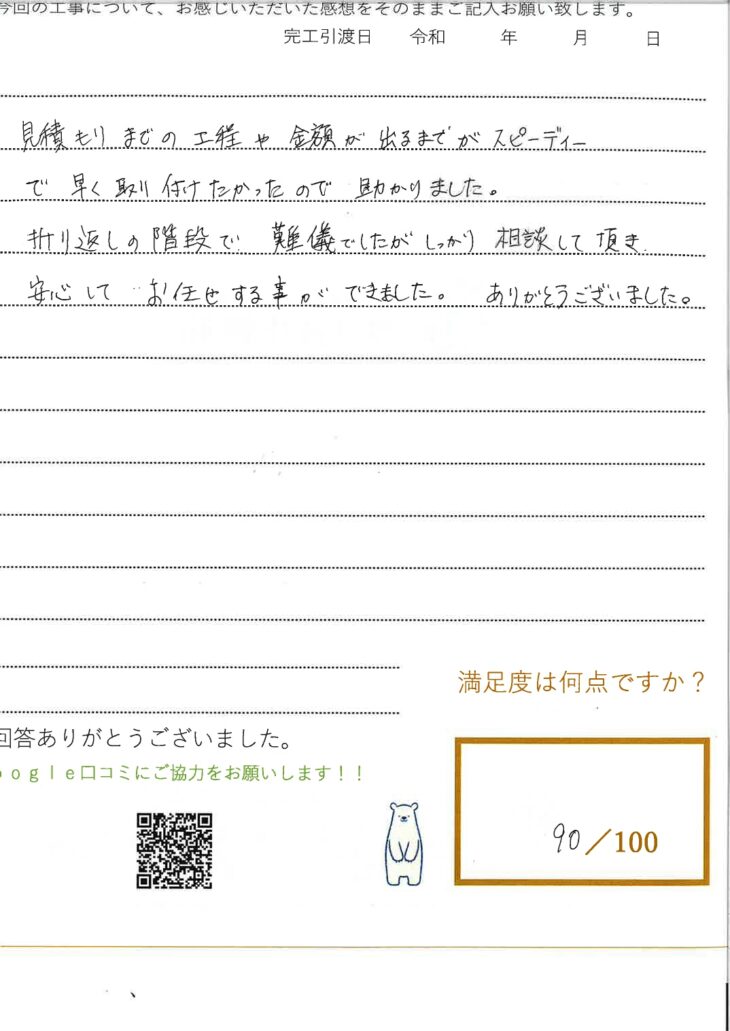 今回の工事について、お感じいただいた感想をそのままご記入お願い致します。
完工引渡日 令和 年 月 日
見積もりまでの工程や金額が出るまでがスピーディー
で早く取り付けたかったので助かりました。
折り返しの階段で難儀でしたがしっかり相談して頂き
安心してお任せする事ができました。ありがとうございました。
満足度は何点ですか?
回答ありがとうございました。
oogle口コミにご協力をお願いします!!
90/100